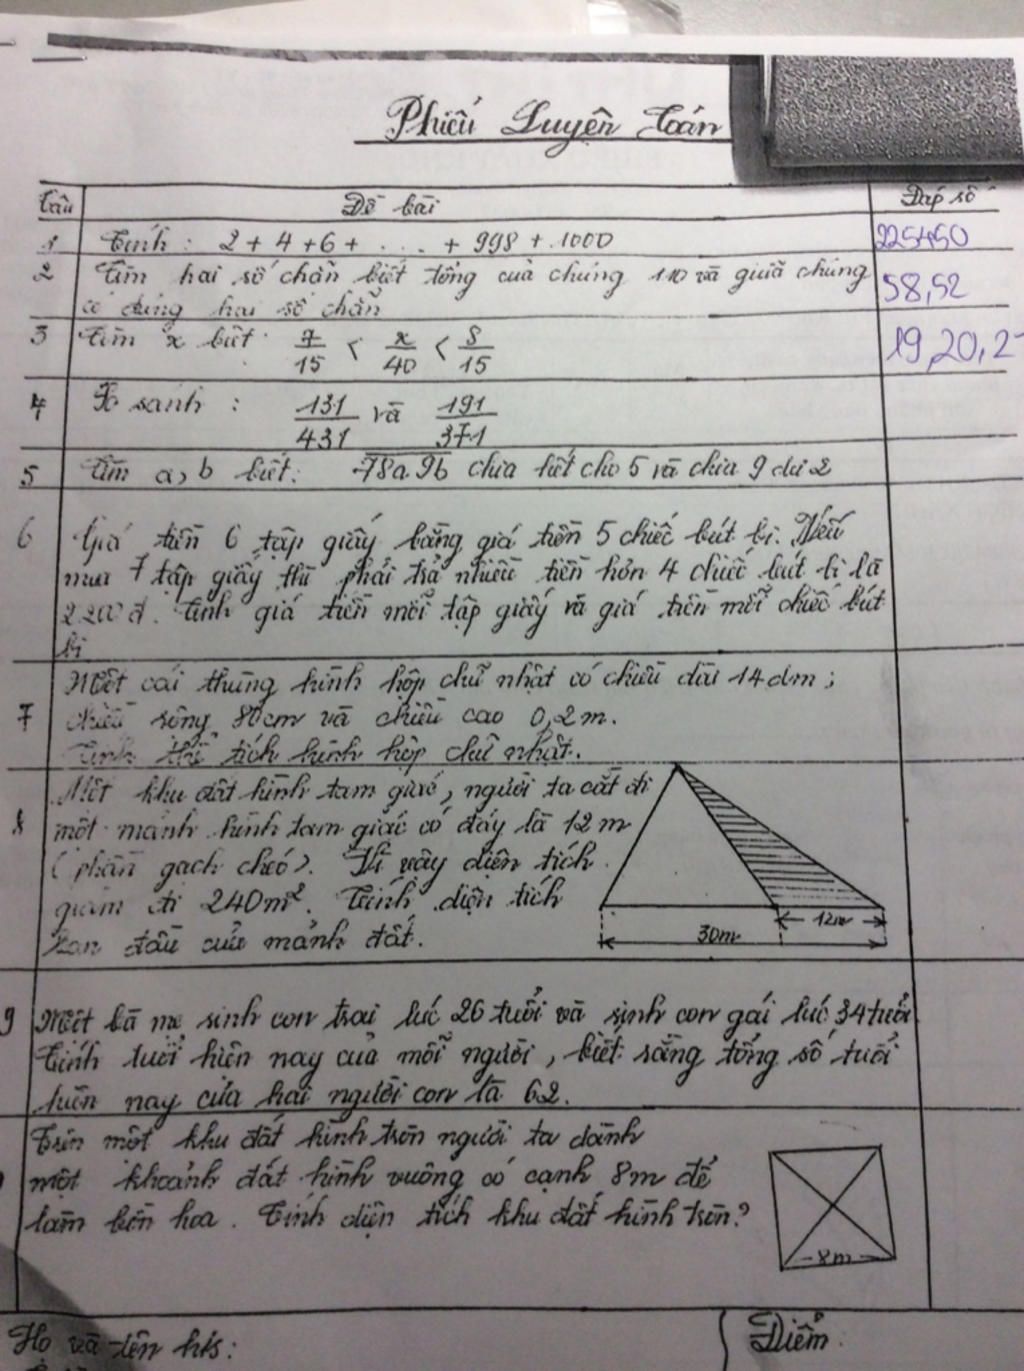 Phiếu Luyện Toán
Câu Đề bài Đáp số
1 Tính: 2 + 4 + 6 + . . . . + 998 + 1000 225450
2 Tìm hai số chẵn biết tổng của chúng 110 và giữa chúng 58,52
có đúng hai số chẵn
3 Tìm x biết: 7/15 < x/40 < 8/15 19,20,21
4 So sánh : 131/431 và 191/371
5 Tìm a, b biết: 78a9b chia hết cho 5 và chia 9 dư 2
6 Giá tiền 6 tập giấy bằng giá tiền 5 chiếc bút bi. Nếu
mua 7 tập giấy thì phải trả nhiều tiền hơn 4 chiếc bút bi là
2200đ. Tính giá tiền mỗi tập giấy và giá tiền mỗi chiếc bút
bi
Một cái thùng hình hộp chữ nhật có chiều dài 14dm;
7 chiều rộng 80cm và chiều cao 0,2m.
Tính thể tích hình hộp chữ nhật.
Một khu đất hình tam giác, người ta cắt đi
8 một mảnh hình tam giác có đáy là 12m
(phần gạch chéo). Vì vậy diện tích
giảm đi 240m². Tính diện tích
ban đầu của mảnh đất.
12m
30m
9 Một bà mẹ sinh con trai lúc 26 tuổi và sinh con gái lúc 34 tuổi
Tính tuổi hiện nay của mỗi người, biết rằng tổng số tuổi
hiện nay của hai người con là 62.
Trên một khu đất hình tròn người ta dành
một khoảnh đất hình vuông có cạnh 8m để
làm bồn hoa. Tính diện tích khu đất hình tròn?
8m
Họ và tên h/s:
Điểm: